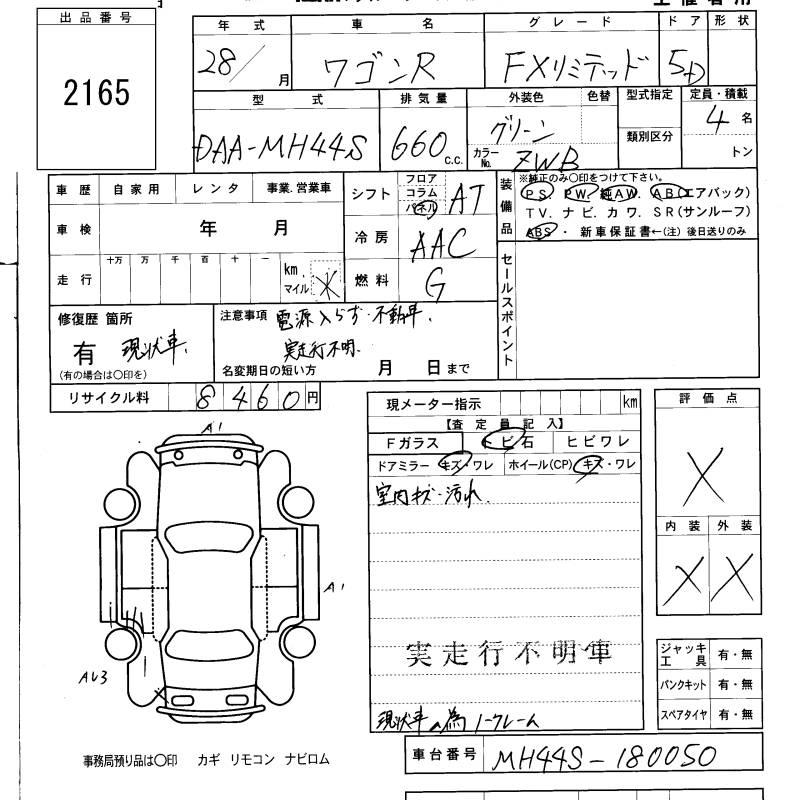 出品番号
2165
年式 車名 グレード ドア 形状
28/ 月 ワゴンR FXリミテッド 5D
型式 排気量 外装色 色替 型式指定 定員・積載
DAA-MH44S 660 c.c. グリーン 類別区分 4 名
カラーNo. ZWB トン
車歴 自家用 レンタ 事業.営業車
車検 年 月
走行 十万 万 千 百 十 一 km. マイル ※
シフト フロア コラム パネル AT
冷房 AAC
燃料 G
装備品 ※純正のみ〇印をつけて下さい。
PS. PW. 純AW. AB(エアバック)
TV. ナビ. カワ. SR(サンルーフ)
ABS・ 新車保証書←(注) 後日送りのみ
セールスポイント
修復歴 箇所
有 現状車.
(有の場合は〇印を)
注意事項 電源入らず・不動車.
実走行不明.
名変期日の短い方 月 日まで
リサイクル料 8460円
現メーター指示 km
【査定員記入】
Fガラス トビ石 ヒビワレ
ドアミラー キズ・ワレ ホイール(CP) キズ・ワレ
室内キズ・汚れ.
実走行不明車
現状車の為ノークレーム
評価点
X
内装 外装
X X
A1
A1
AU3
ジャッキ工具 有・無
パンクキット 有・無
スペアタイヤ 有・無
事務局預り品は〇印 カギ リモコン ナビロム
車台番号 MH44S-180050